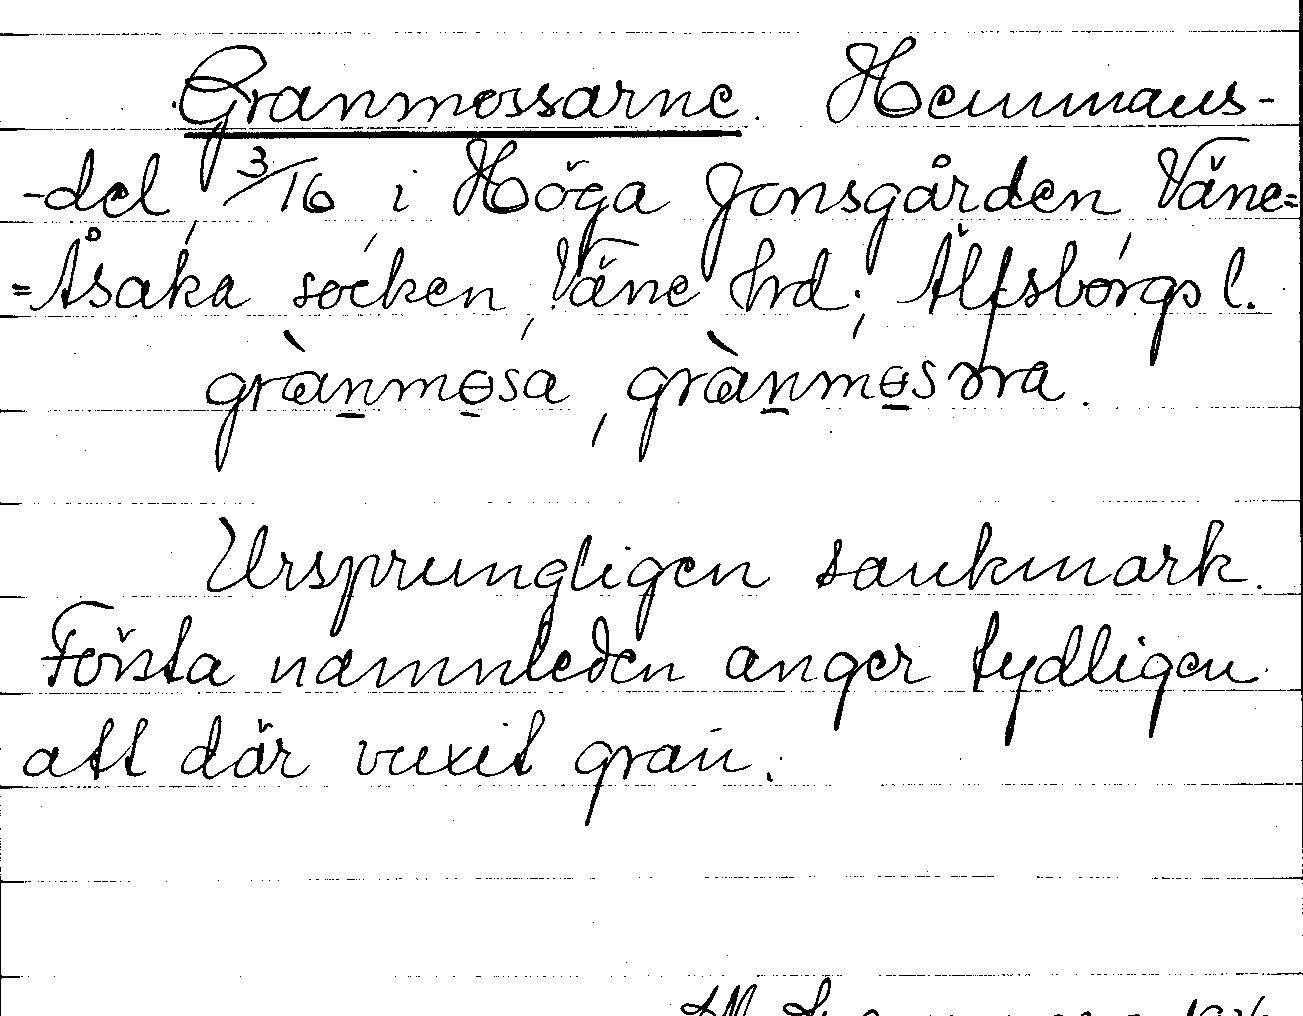 Granmossarne. Hemmans-
-del, 3/16, i Höga Jonsgården, Väne=
=Åsaka socken, Väne hrd; Älfsborgs l.
grànmɵsa, grànmɵsơra.
Ursprungligen sankmark.
Första namnleden anger tydligen
att där vuxit gran.